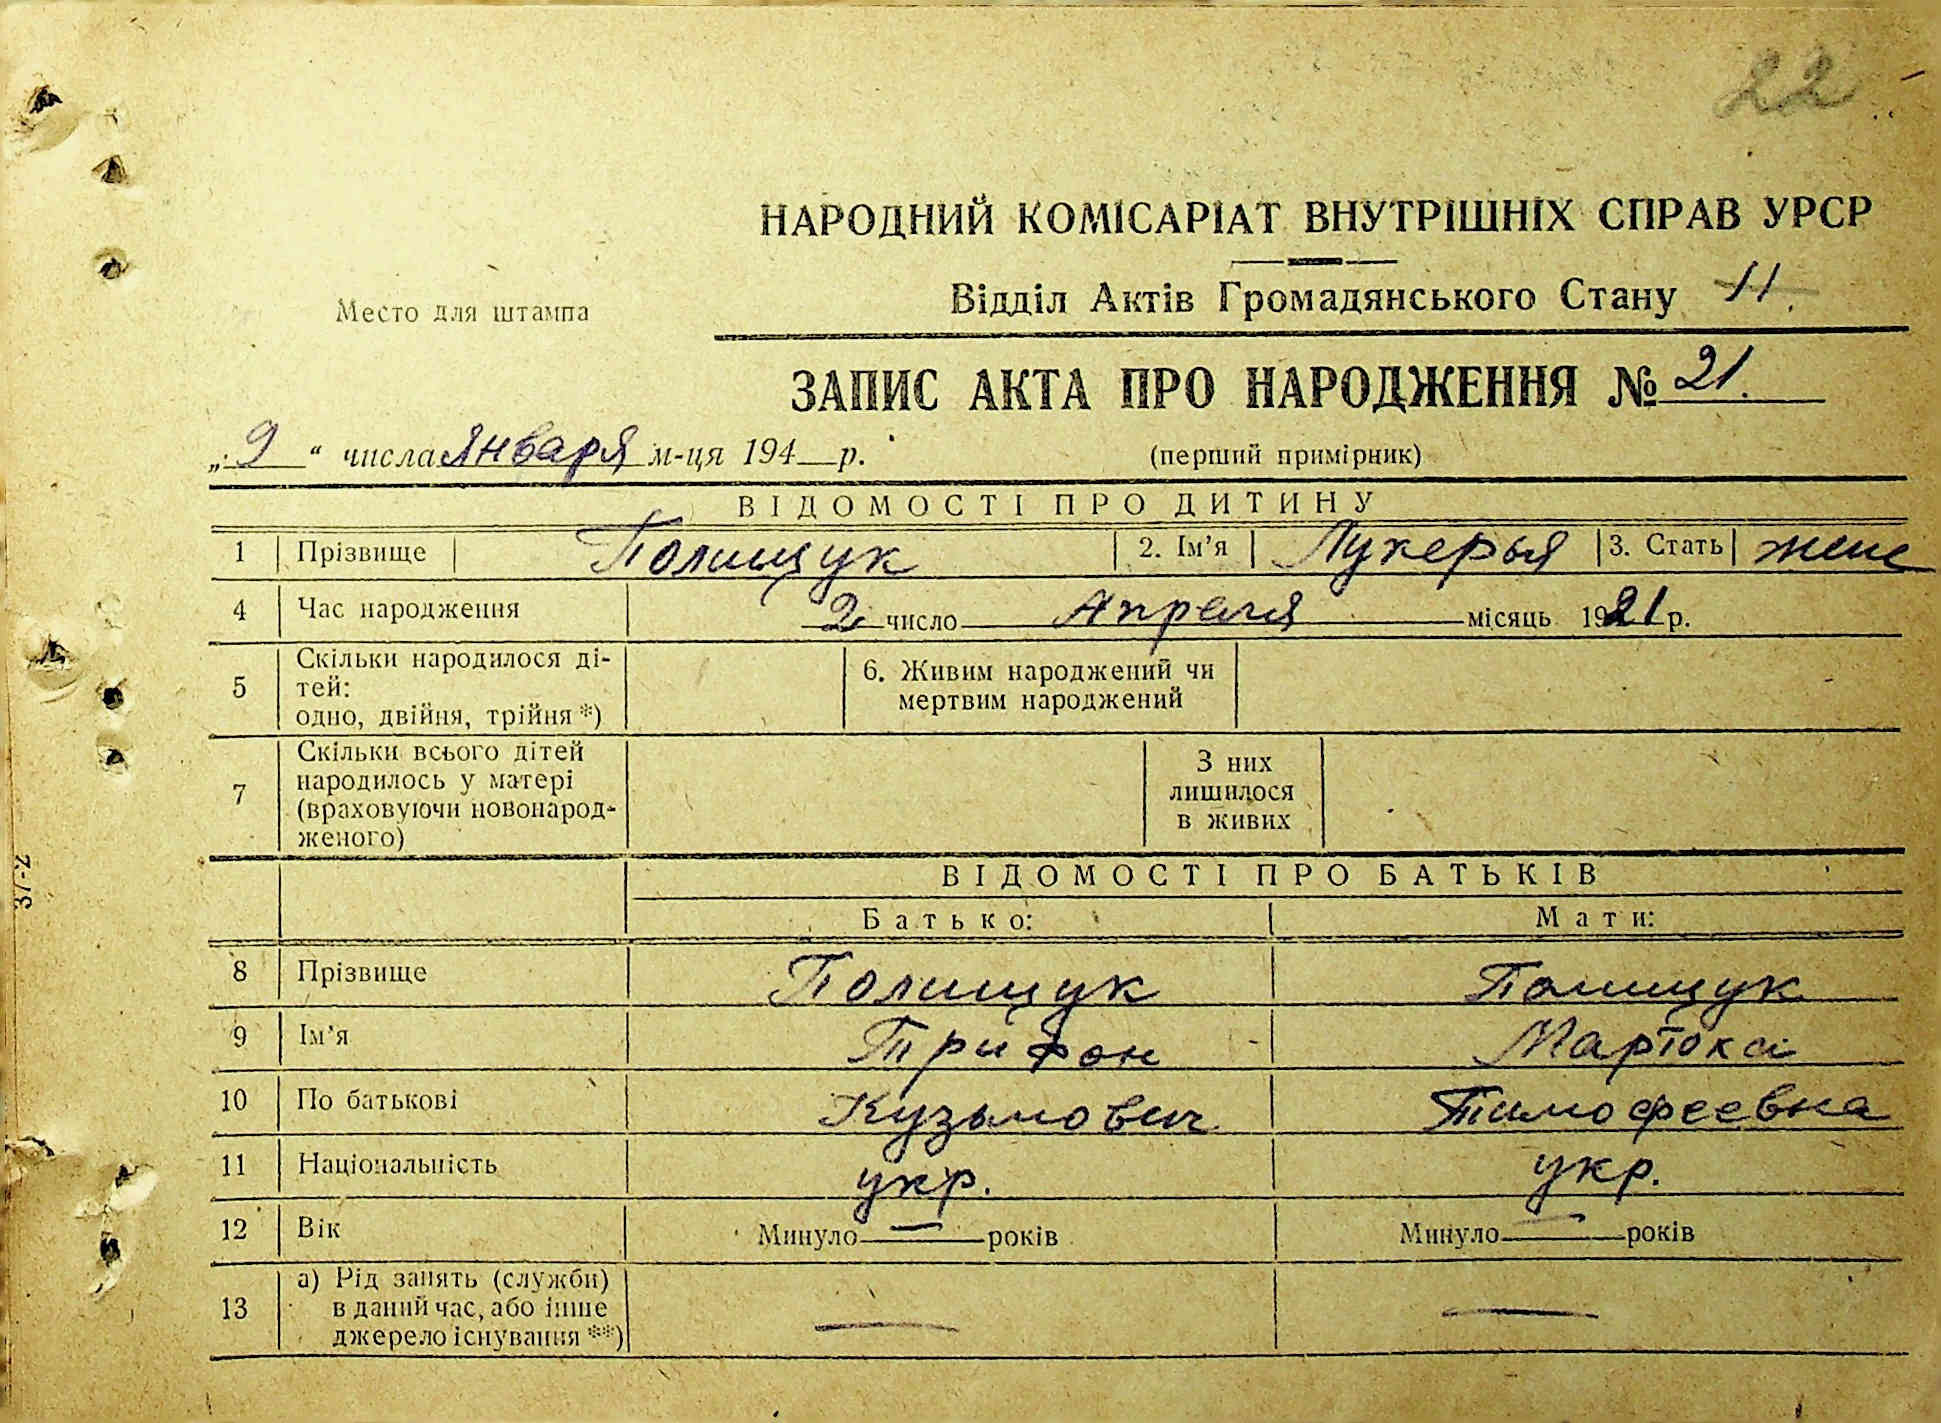 22
НАРОДНИЙ КОМІСАРІАТ ВНУТРІШНІХ СПРАВ УРСР
Место для штампа
Відділ Актів Громадянського Стану 11.
ЗАПИС АКТА ПРО НАРОДЖЕННЯ № 21.
„9“ числа января м-ця 194 р.
(перший примірник)
ВІДОМОСТІ ПРО ДИТИНУ
1 Прізвище Полищук 2. Ім’я Лукерья 3. Стать женс
4 Час народження 2 число Апреля місяць 1921 р.
5 Скільки народилося ді-
тей:
одно, двійня, трійня *)
6. Живим народжений чи
мертвим народжений
7 Скільки всього дітей
народилось у матері
(враховуючи новонарод-
женого)
З них
лишилося
в живих
37-2
ВІДОМОСТІ ПРО БАТЬКІВ
Батько: Мати:
8 Прізвище Полищук Полищук
9 Ім’я Трифон
10 По батькові Кузьмович Тимофеевна
11 Національність укр. укр.
12 Вік Минуло — років Минуло — років
13 а) Рід занять (служби)
в даний час, або інше
джерело існування **)
— —